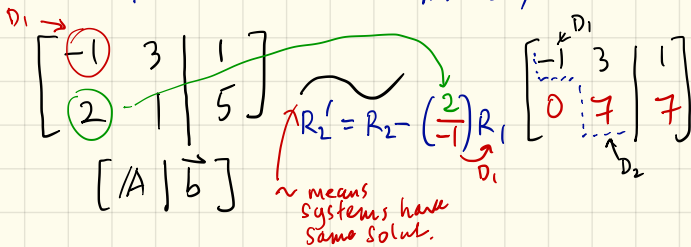 D₁ →
[ -1 3 | 1 ]
[ 2 1 | 5 ]
[ A | b⃗ ]
~
R₂' = R₂ - (2/-1) R₁
D₁
~ means
systems have
same solut.
D₁
[ -1 3 | 1 ]
[ 0 7 | 7 ]
D₂